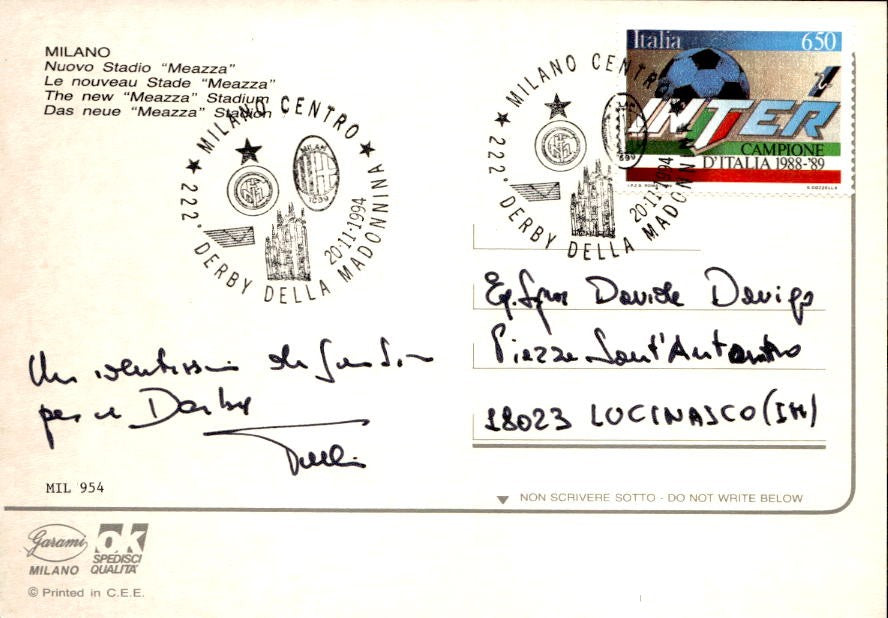 MILANO
Nuovo Stadio "Meazza"
Le nouveau Stade "Meazza"
The new "Meazza" Stadium
Das neue "Meazza" Stadion
★ MILANO CENTRO ★
222° DERBY DELLA MADONNINA
20·11·1994
MILAN
1899
★ MILANO CENTRO
222° DERBY DELLA MADONNINA
20·11·1994
1899
Italia 650
INTER
CAMPIONE
D'ITALIA 1988-'89
I.P.Z.S. ROMA
Davide Davigo
Piazza Sant'Antonio
18023 LUCINASCO (IM)
Un
per il Derby
MIL 954
NON SCRIVERE SOTTO - DO NOT WRITE BELOW
Garami
MILANO
ok
SPEDISCI
QUALITA'
© Printed in C.E.E.